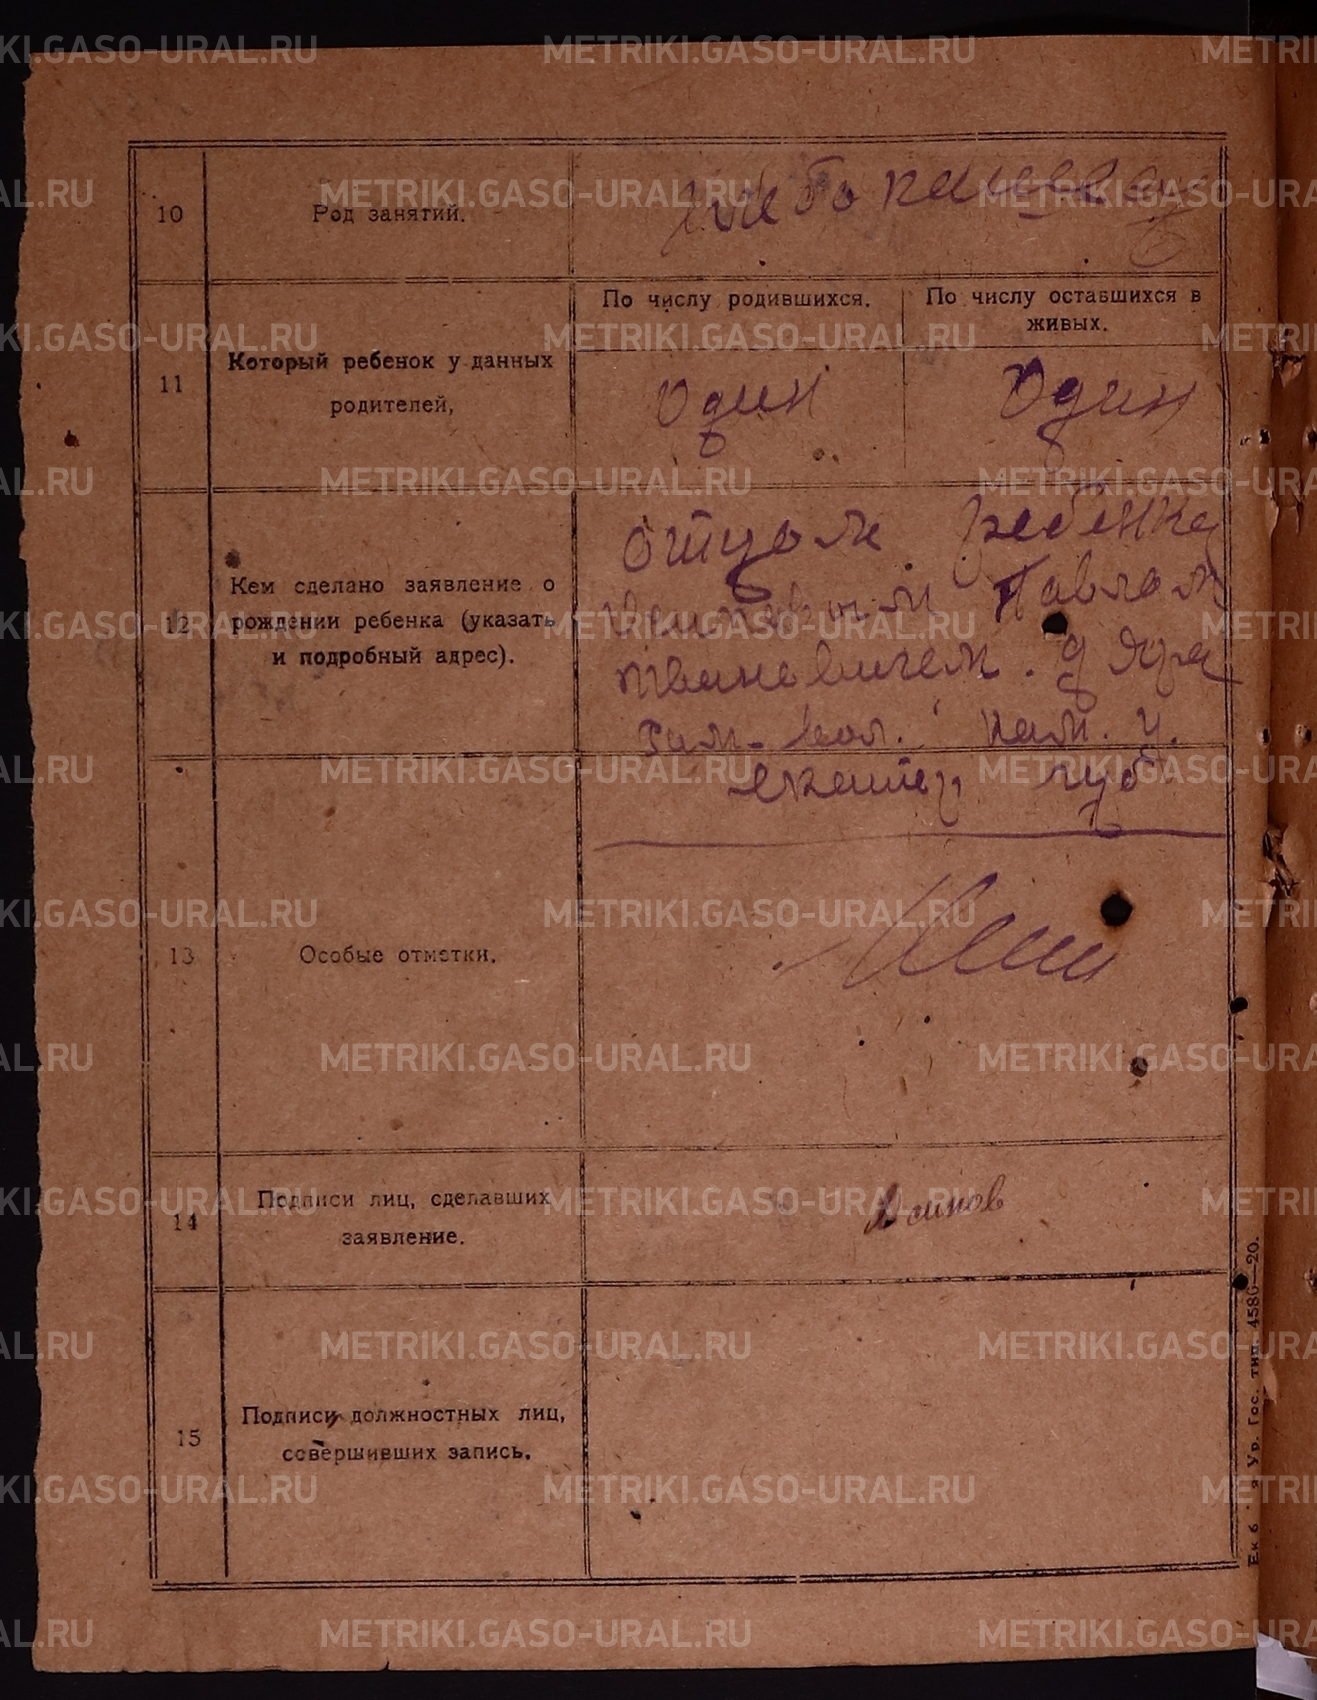 10
Род занятий.
11
Который ребенок у данных
родителей,
По числу родившихся.
По числу оставшихся в
живых.
Один
Один
12
Кем сделано заявление о
рождении ребенка (указать
и подробный адрес).
Отцом ребенка
Павлом
Ивановичем. д
вол. Кам. у.
Екатер губ.
13
Особые отметки.
14
Подписи лиц, сделавших
заявление.
15
Подписи должностных лиц,
совершивших запись.
Ур. Гос. тип. 4586—20.
METRIKI.GASO-URAL.RU